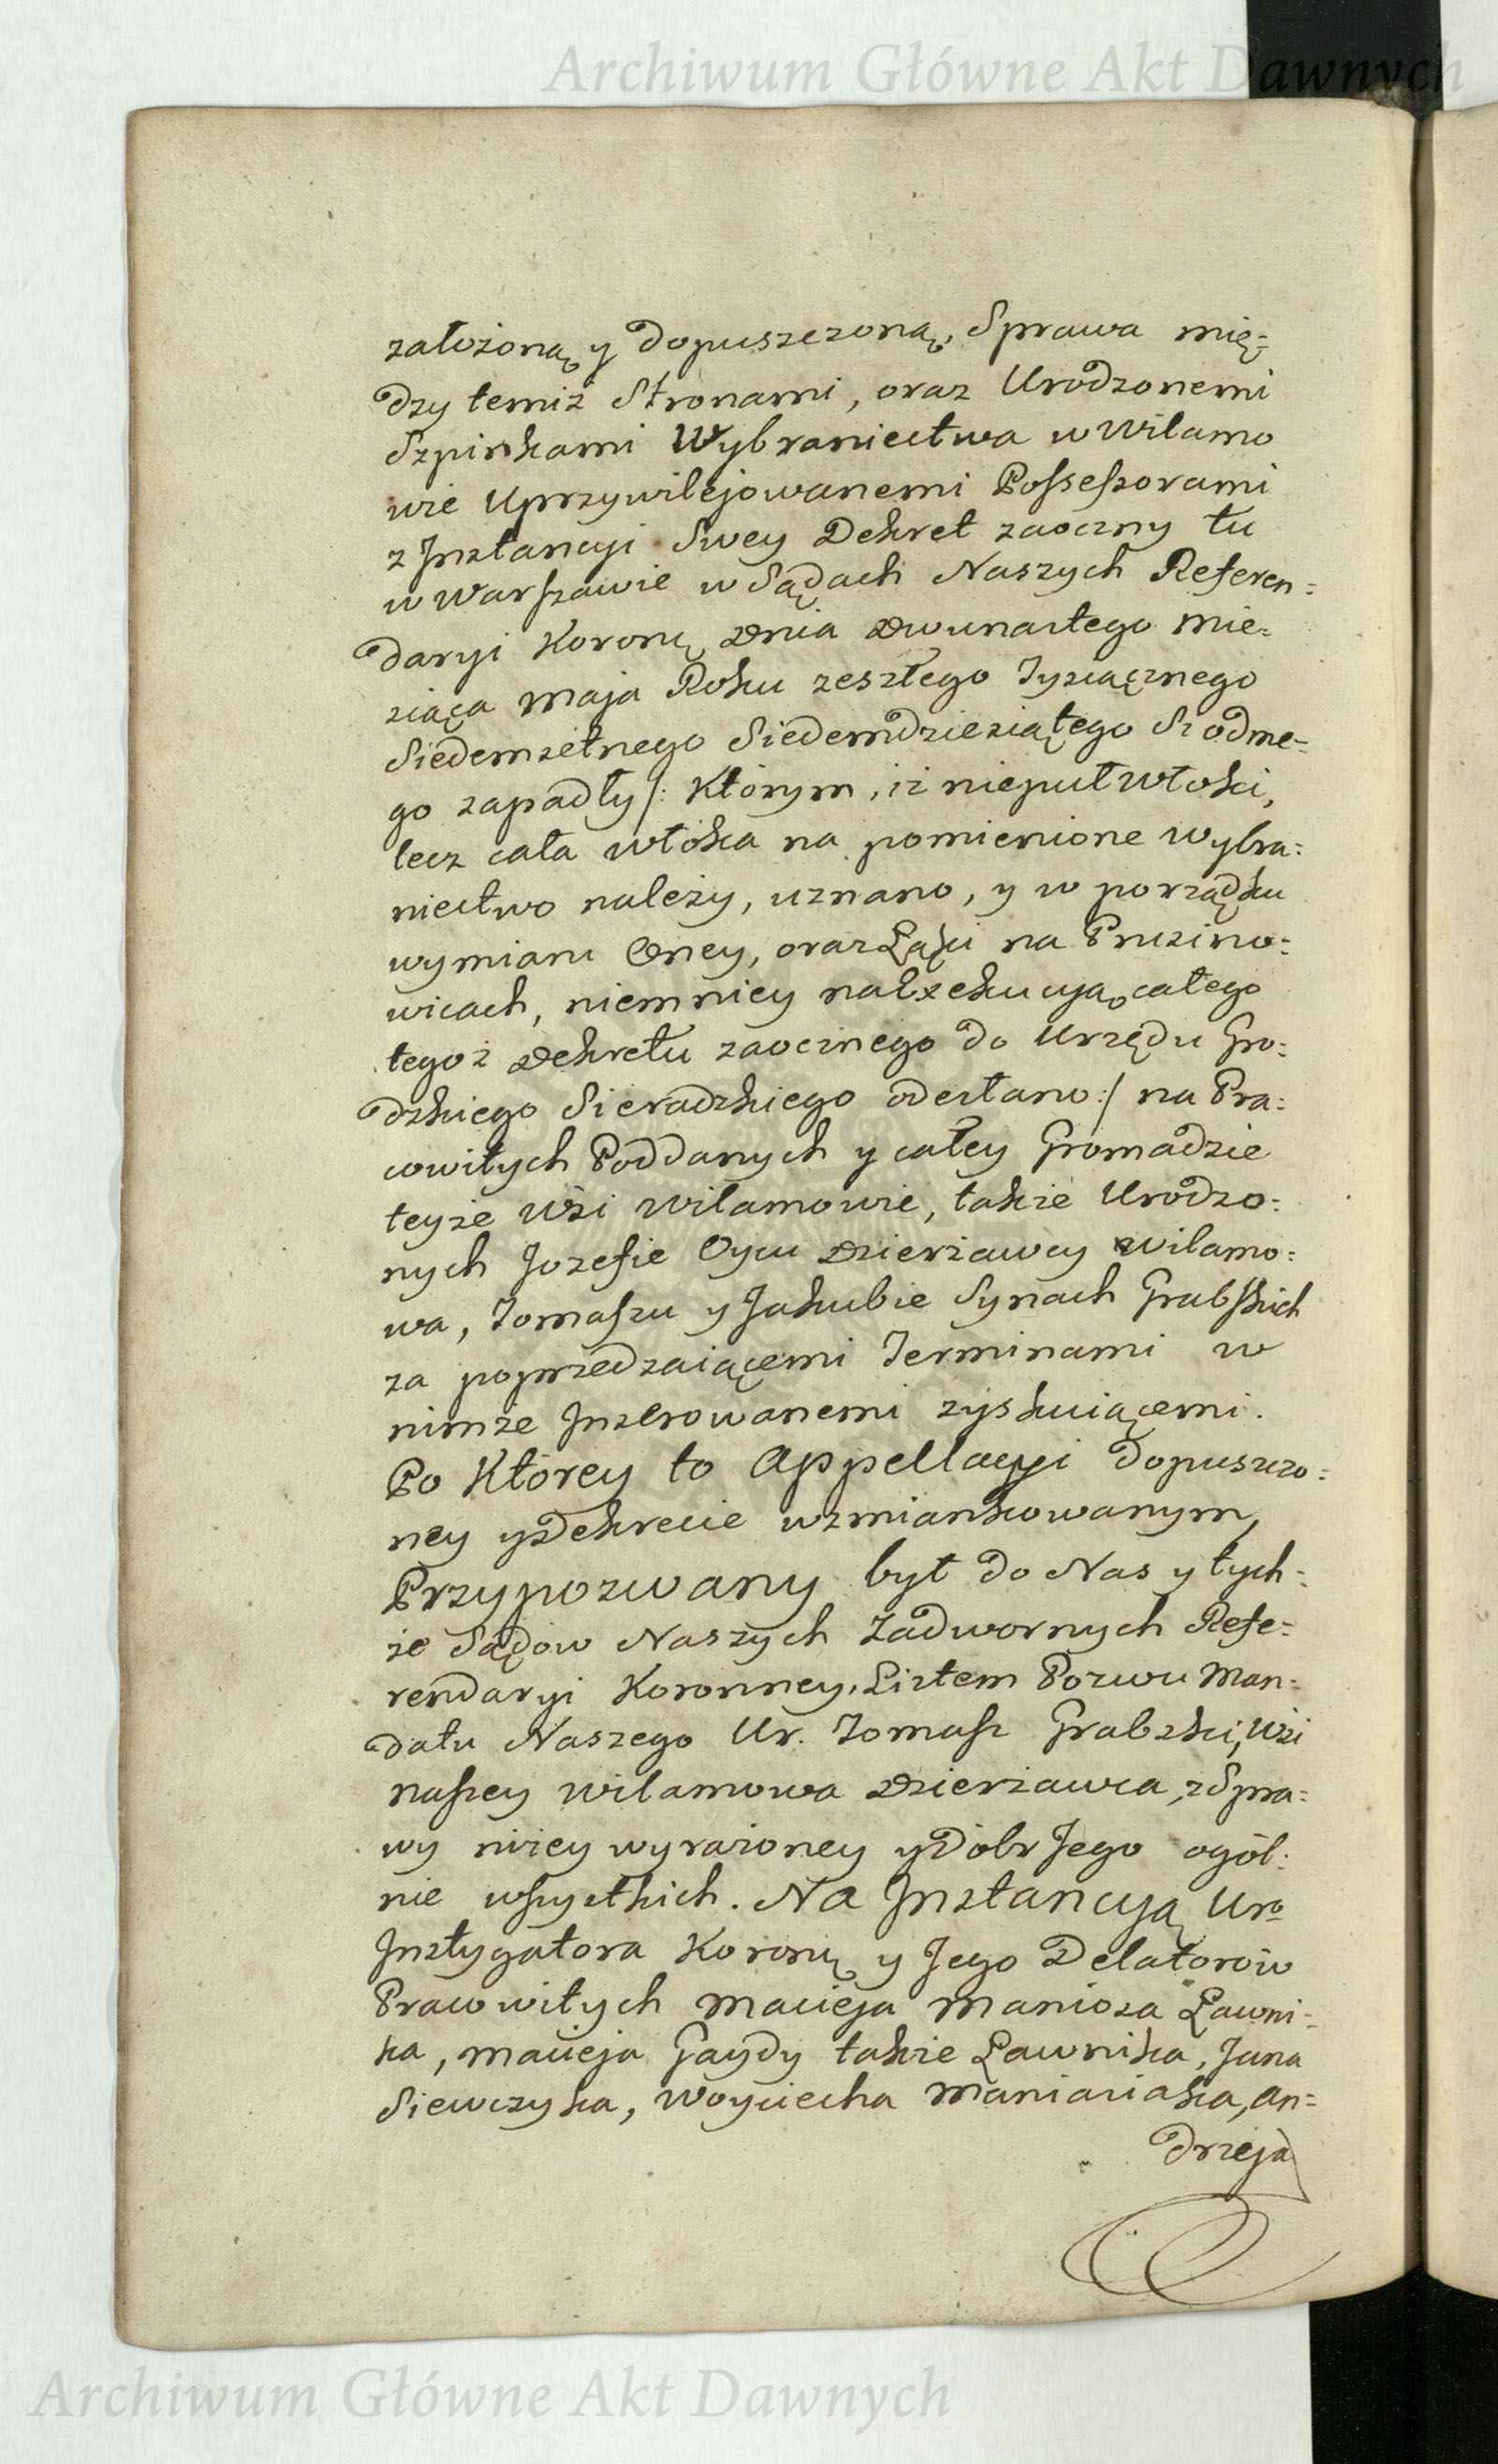 Archiwum Główne Akt Dawnych
założoną y dopuszczoną, Sprawa mię=
dzy temiż Stronami, oraz Urodzonemi
Szpinkami Wybraniectwa w Wilamo
wie Uprzywilejowanemi Possessorami
z Jnstancyi Swey Dekret zaoczny tu
w Warszawie w Sądach Naszych Referen=
daryi Koronney Dnia Dwunastego Mie=
siąca Maja Roku zeszłego Tysiącznego
Siedemsetnego Siedemdziesiątego Siodme=
go zapadły /: Którym, iż nie puł Włoki,
lecz cała Włoka na pomienione Wybra=
niectwo należy, uznano, y w porządku
wymiaru Oney, oraz Łąki na Pruszino=
wicach, niemniey na Exekucyą całego
tegoż Dekretu zaocznego do Urzędu Gro=
dzkiego Sieradzkiego odesłano :/ na Pra=
cowitych Poddanych y całey Gromadzie
teyże Wsi Wilamowie, także Urodzo=
nych Jozefie Oycu Dzierżawcy Wilamo=
wa, Tomaszu y Jakubie Synach Grabskich
za poprzedzaiącemi Terminami w
nimże Jnserowanemi zyskuiącemi.
Po Którey to Appellacyi dopuszczo=
ney y Dekrecie wzmiankowanym,
Przypozwany był do Nas y tych=
że Sądow Naszych Zadwornych Refe=
rendaryi Koronney, Listem Pozwu Man=
datu Naszego Ur. Tomasz Grabski, Wsi
naszey Wilamowa Dzierżawca, z Spra=
wy niżey wyrażoney y Dóbr Jego ogól=
nie wszystkich. Na Jnstancyą Uro
Jnstygatora Koronney y Jego Delatorów
Pracowitych Macieja Maniosa Ławni=
ka, Macieja Gaydy także Ławnika, Jana
Siewczyka, Woyciecha Maniasiaka, An=
drzeja
Archiwum Główne Akt Dawnych